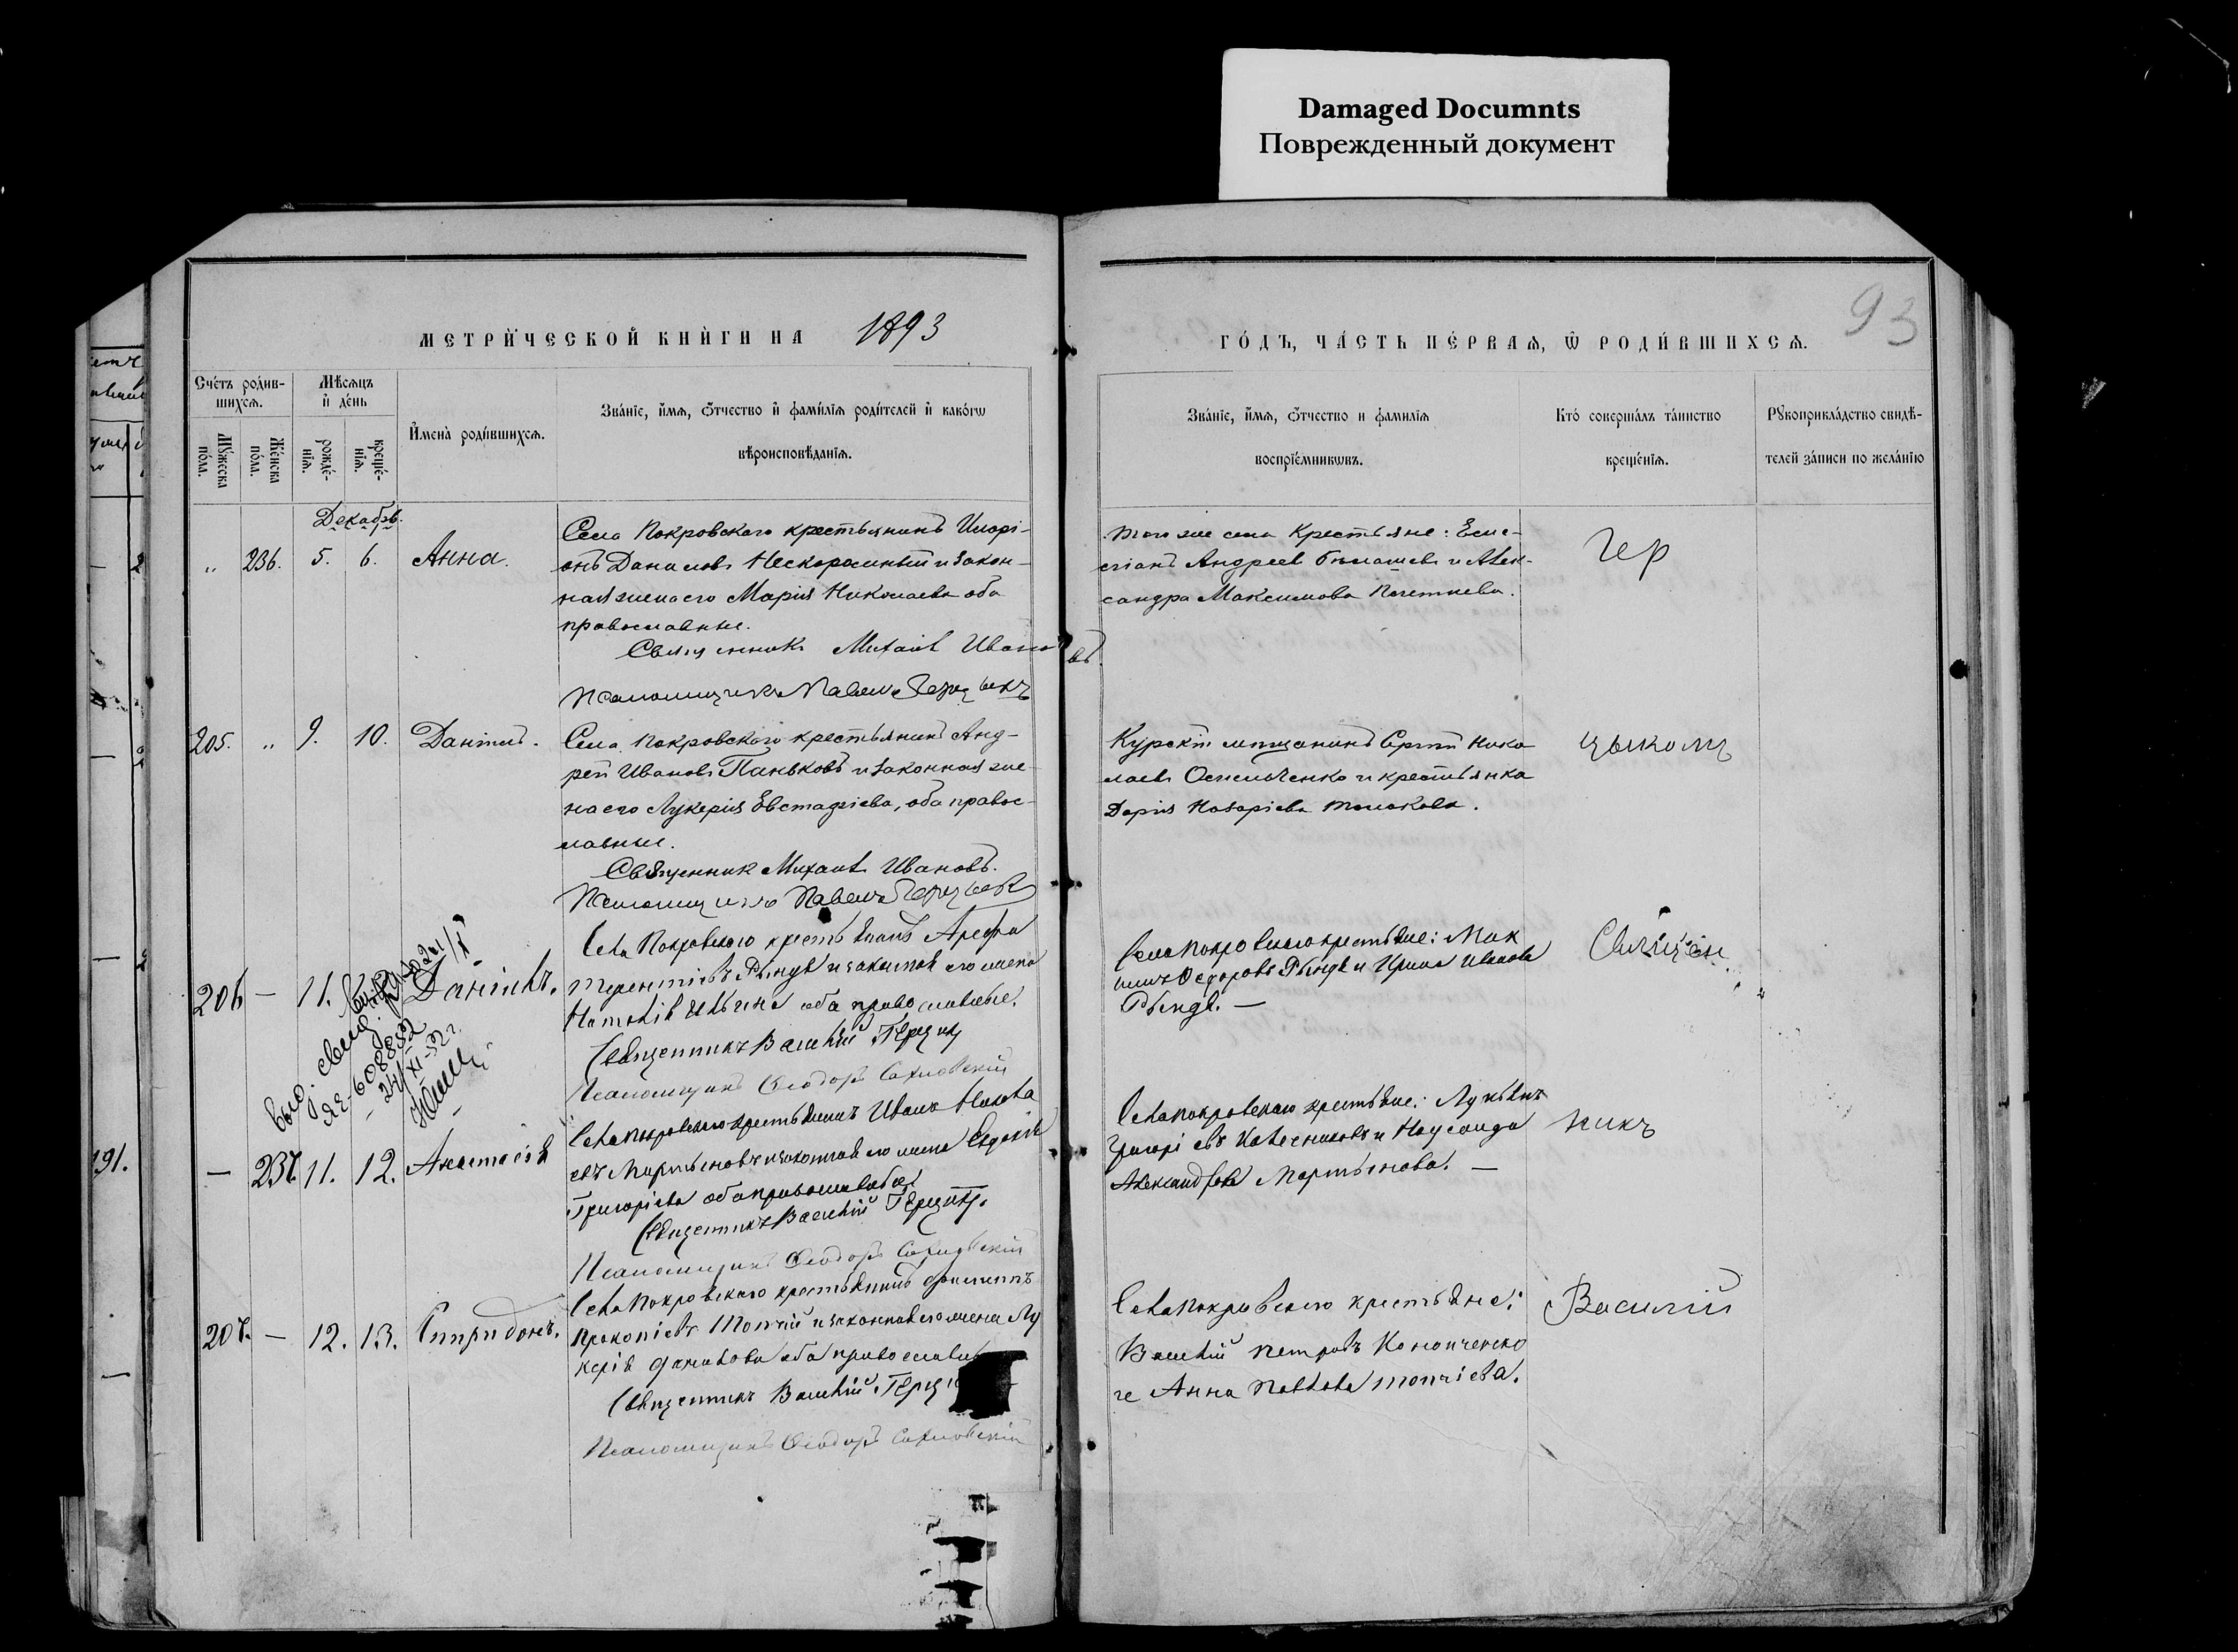 Damaged Documnts
Поврежденный документ
93
МЕТРИЧЕСКОЙ КНИГИ НА 1893
ГОДЪ, ЧАСТЬ ПЕРВАЯ, Ѿ РОДИВШИХСЯ.
Счетъ родив-
шихся.
Мужеска пола.
Женска пола.
Мѣсяцъ и день
рожде-
нія.
креще-
нія.
Имена родившихся.
Званіе, имя, отчество и фамилія родителей и какогѡ
вѣроисповѣданія.
Званіе, имя, отчество и фамилія
воспріемникѡвъ.
Кто совершалъ таинство
крещенія.
Рукоприкладство свидѣ-
телей записи по желанію
Декабрь.
„ 236. 5. 6. Анна.
Села Покровского крестьянинъ Илларі-
онъ Даниловъ и закон-
ная жена его Марія Николаева оба
православные.
Священникъ Михаилъ Ивановъ.
Псаломщикъ Павелъ Герцыкъ
того же села Крестьяне: Еме-
ліанъ Андреевъ и Алек-
сандра Максимова
Гер
205. „ 9. 10. Даніилъ.
Села Покровского крестьянинъ Анд-
рей Ивановъ Паньковъ и законная же-
на его Лукерія Евстафіева, оба правос-
лавные.
Священникъ Михаилъ Ивановъ.
Псаломщикъ Павелъ Герцыкъ
Курскій мѣщанинъ Сергѣй Нико
лаевъ и крестьянка
Дарія Назаріева Толокова.
цыкомъ
206 — 11. Даніилъ.
Выд. свид.
ЯЕ-608832
24/XI-52 г.
Села Покровскаго крестьянинъ Арефа
Терентіевъ Рында и законная его жена
Наталія Ильина оба православные.
Священникъ Василій Герцыкъ
Псаломщикъ Ѳеодоръ Сахновскій
Села Покровскаго крестьяне: Мак
симъ Ѳедоровъ Рында и Ирина Иванова
Рында. —
Священ
— 237. 11. 12. Анастасія
Села Покровскаго крестьянинъ Иванъ
евъ Мартыновъ и законная его жена Евдокія
Григоріева оба православные
Священникъ Василій Герцыкъ.
Псаломщикъ Ѳеодоръ Сахновскій
Села Покровскаго крестьяне: Лукьянъ
Григоріевъ Колесниковъ и
Александрова Мартынова. —
никъ
207. — 12. 13. Спиридонъ.
Села Покровскаго крестьянинъ
Прокопіевъ Топчій и законная его жена Лу
керія Данилова оба православн
Священникъ Василій Герцы
Псаломщикъ Ѳеодоръ Сахновскій
Села Покровскаго крестьяне:
Василій Петровъ Кононченко
и Анна Павлова Топчіева.
Василій
191.